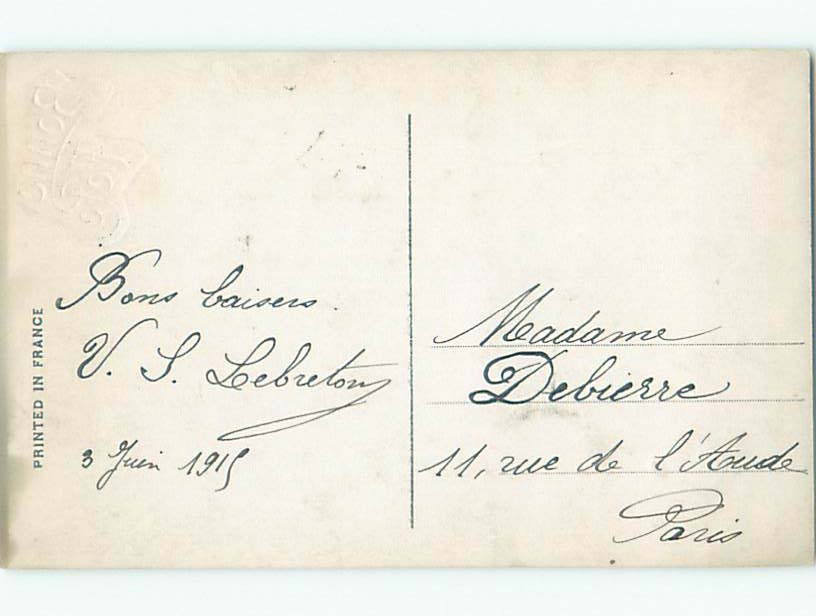 Bons baisers.
V. S. Lebreton
3 Juin 1915
PRINTED IN FRANCE
Madame
Debierre
11, rue de l'Aude
Paris